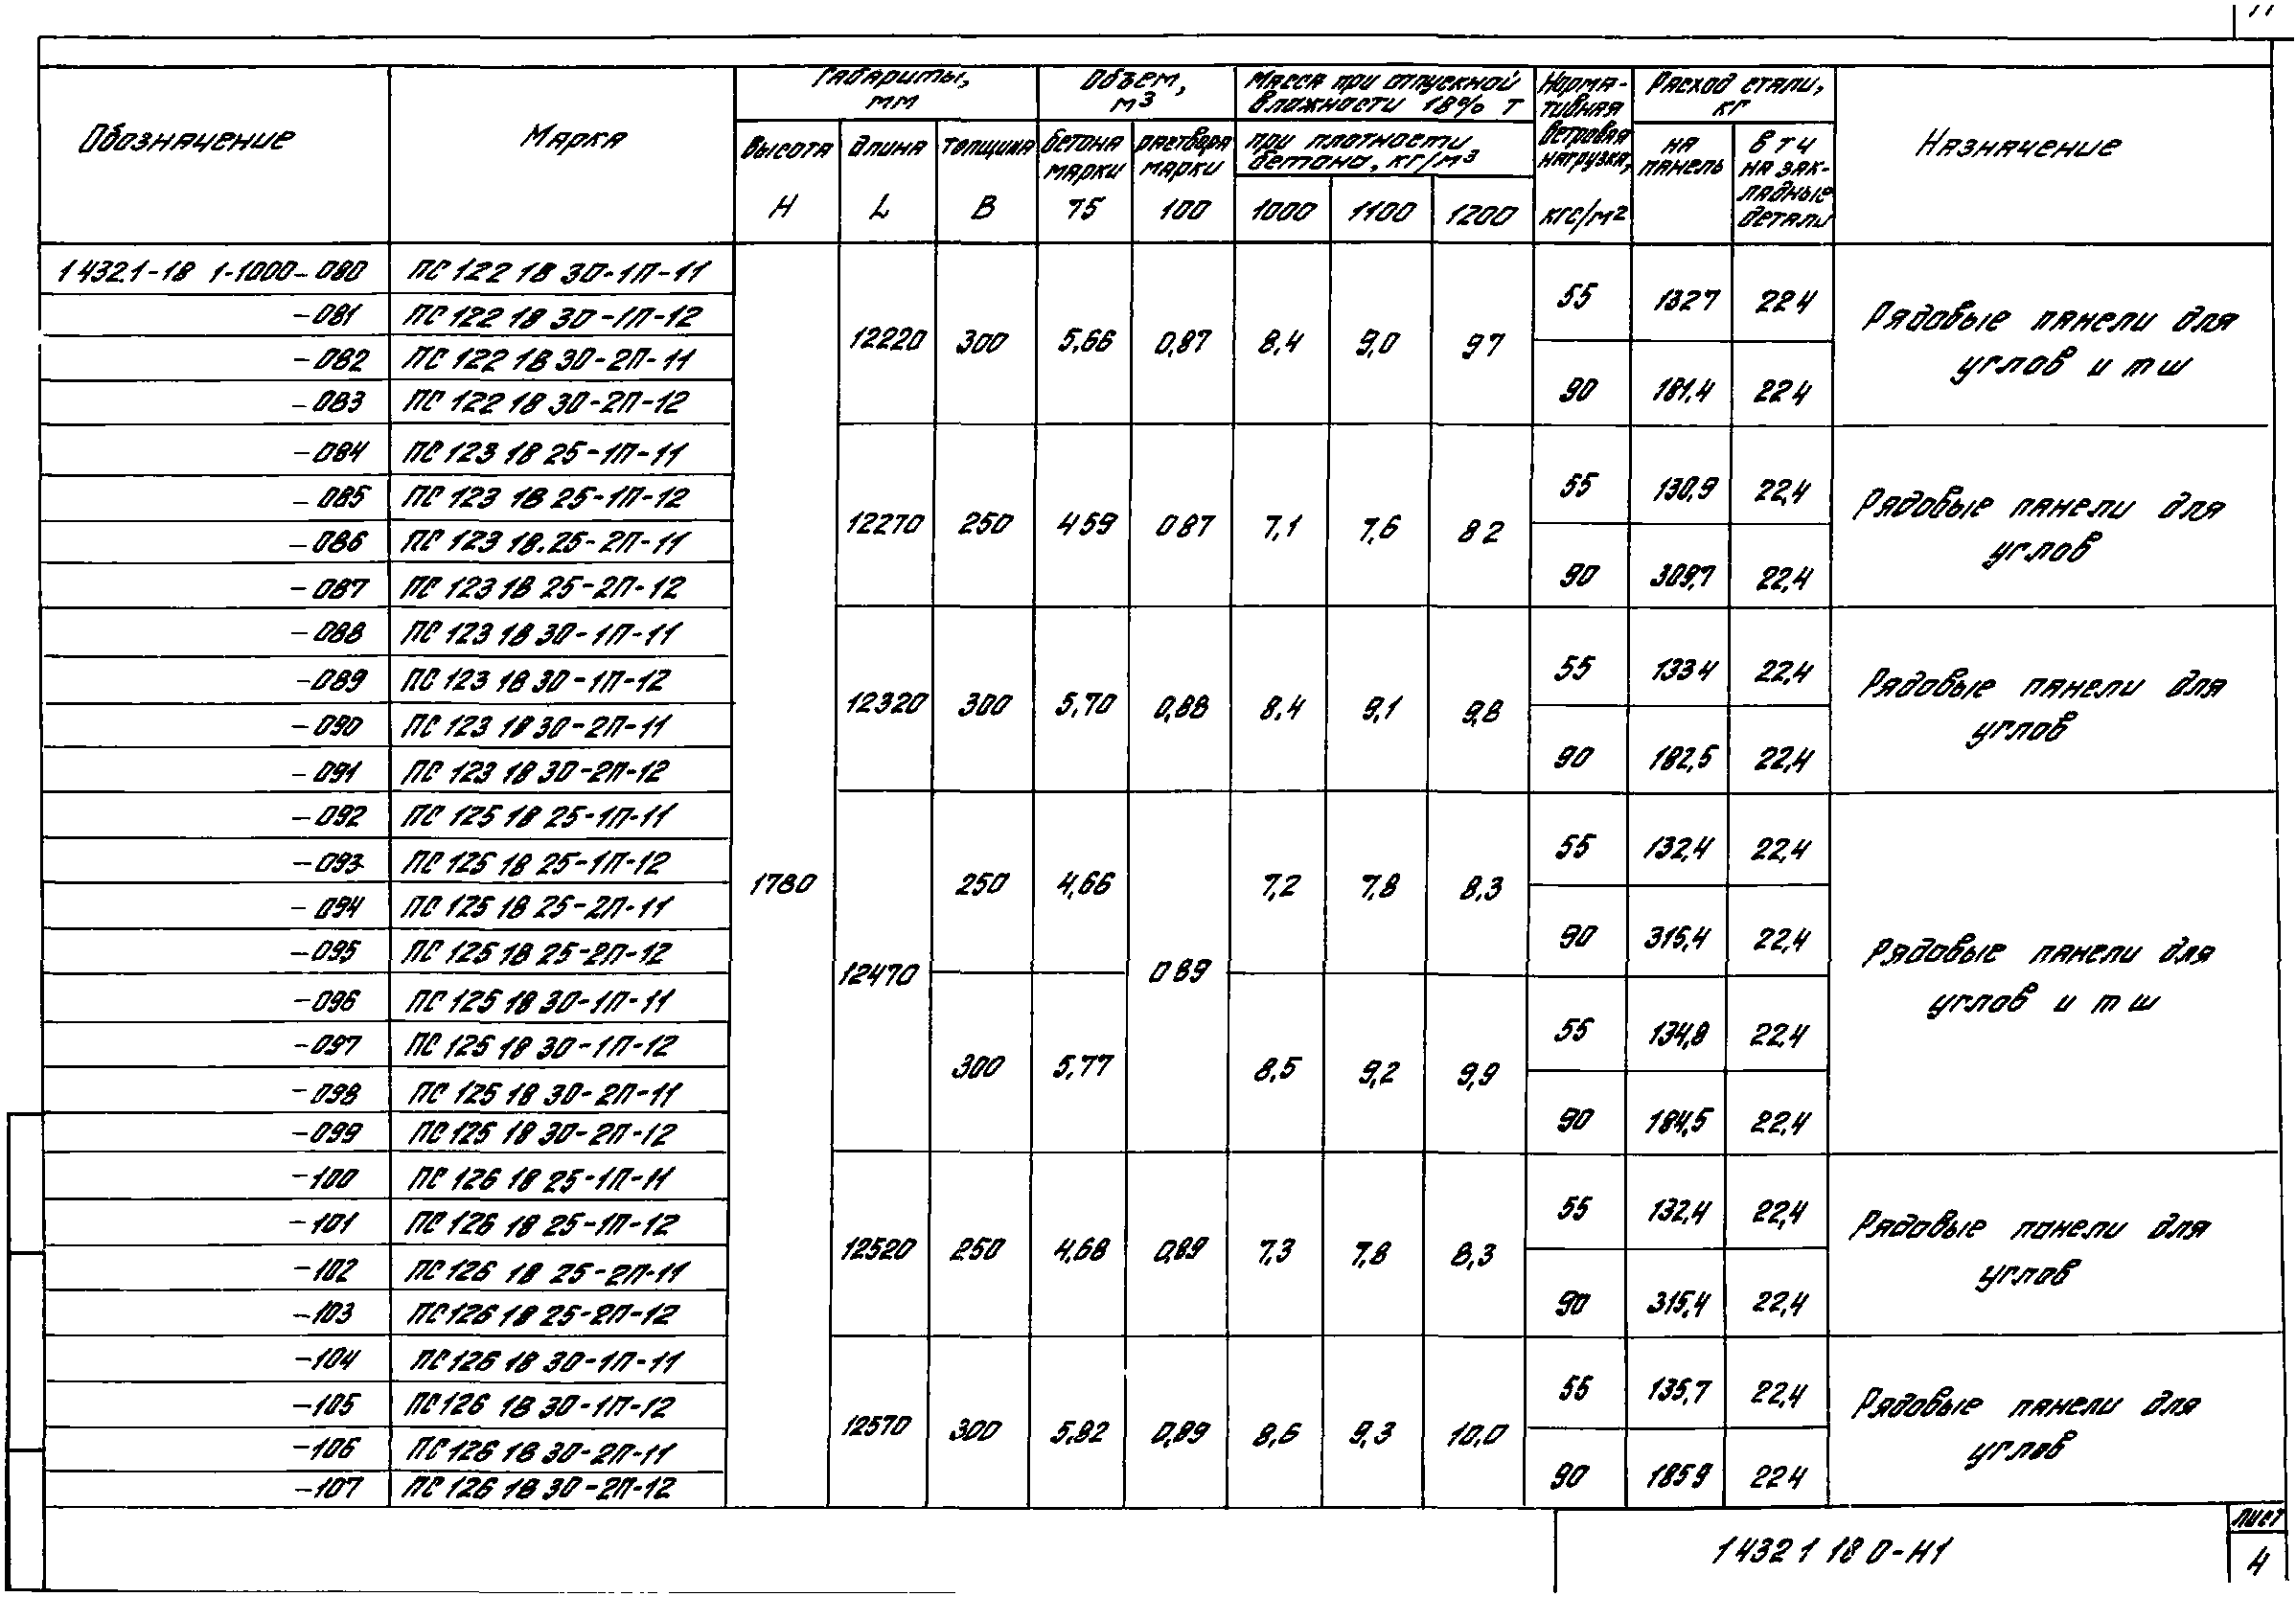 11
Обозначение
Марка
Габариты, мм
Объем, м³
Масса при отпускной влажности 18% т
Норма-
тивная
ветровая
нагрузка,
кгс/м²
Расход стали, кг
Назначение
высота
H
длина
L
толщина
B
бетона
марки
75
раствора
марки
100
при плотности
бетона, кг/м³
1000 1100 1200
на
панель
в т ч
на зак-
ладные
детали
1 432.1-18 1-1000-080 ПС 122 18 30-1П-11
-081 ПС 122 18 30-1П-12
-082 ПС 122 18 30-2П-11
-083 ПС 122 18 30-2П-12
12220 300 5,66 0,87 8,4 9,0 9 7
55 132 7 22 4
90 181,4 22 4
Рядовые панели для
углов и т ш
-084 ПС 123 18 25-1П-11
-085 ПС 123 18 25-1П-12
-086 ПС 123 18.25-2П-11
-087 ПС 123 18 25-2П-12
12270 250 4 59 0 87 7,1 7,6 8 2
55 130,9 22,4
90 309,7 22,4
Рядовые панели для
углов
-088 ПС 123 18 30-1П-11
-089 ПС 123 18 30-1П-12
-090 ПС 123 18 30-2П-11
-091 ПС 123 18 30-2П-12
12320 300 5,70 0,88 8,4 9,1 9,8
55 133 4 22,4
90 182,5 22,4
Рядовые панели для
углов
-092 ПС 125 18 25-1П-11
-093 ПС 125 18 25-1П-12
-094 ПС 125 18 25-2П-11
-095 ПС 125 18 25-2П-12
1780
250 4,66 7,2 7,8 8,3
55 132,4 22,4
90 315,4 22,4
12470 0 89
Рядовые панели для
углов и т ш
-096 ПС 125 18 30-1П-11
-097 ПС 125 18 30-1П-12
-098 ПС 125 18 30-2П-11
-099 ПС 125 18 30-2П-12
300 5,77 8,5 9,2 9,9
55 134,8 22,4
90 184,5 22,4
-100 ПС 126 18 25-1П-11
-101 ПС 126 18 25-1П-12
-102 ПС 126 18 25-2П-11
-103 ПС 126 18 25-2П-12
12520 250 4,68 0,89 7,3 7,8 8,3
55 132,4 22,4
90 315,4 22,4
Рядовые панели для
углов
-104 ПС 126 18 30-1П-11
-105 ПС 126 18 30-1П-12
-106 ПС 126 18 30-2П-11
-107 ПС 126 18 30-2П-12
12570 300 5,82 0,89 8,6 9,3 10,0
55 135,7 22,4
90 185 9 22 4
Рядовые панели для
углов
1 432 1 18 0-Н1
лист
4